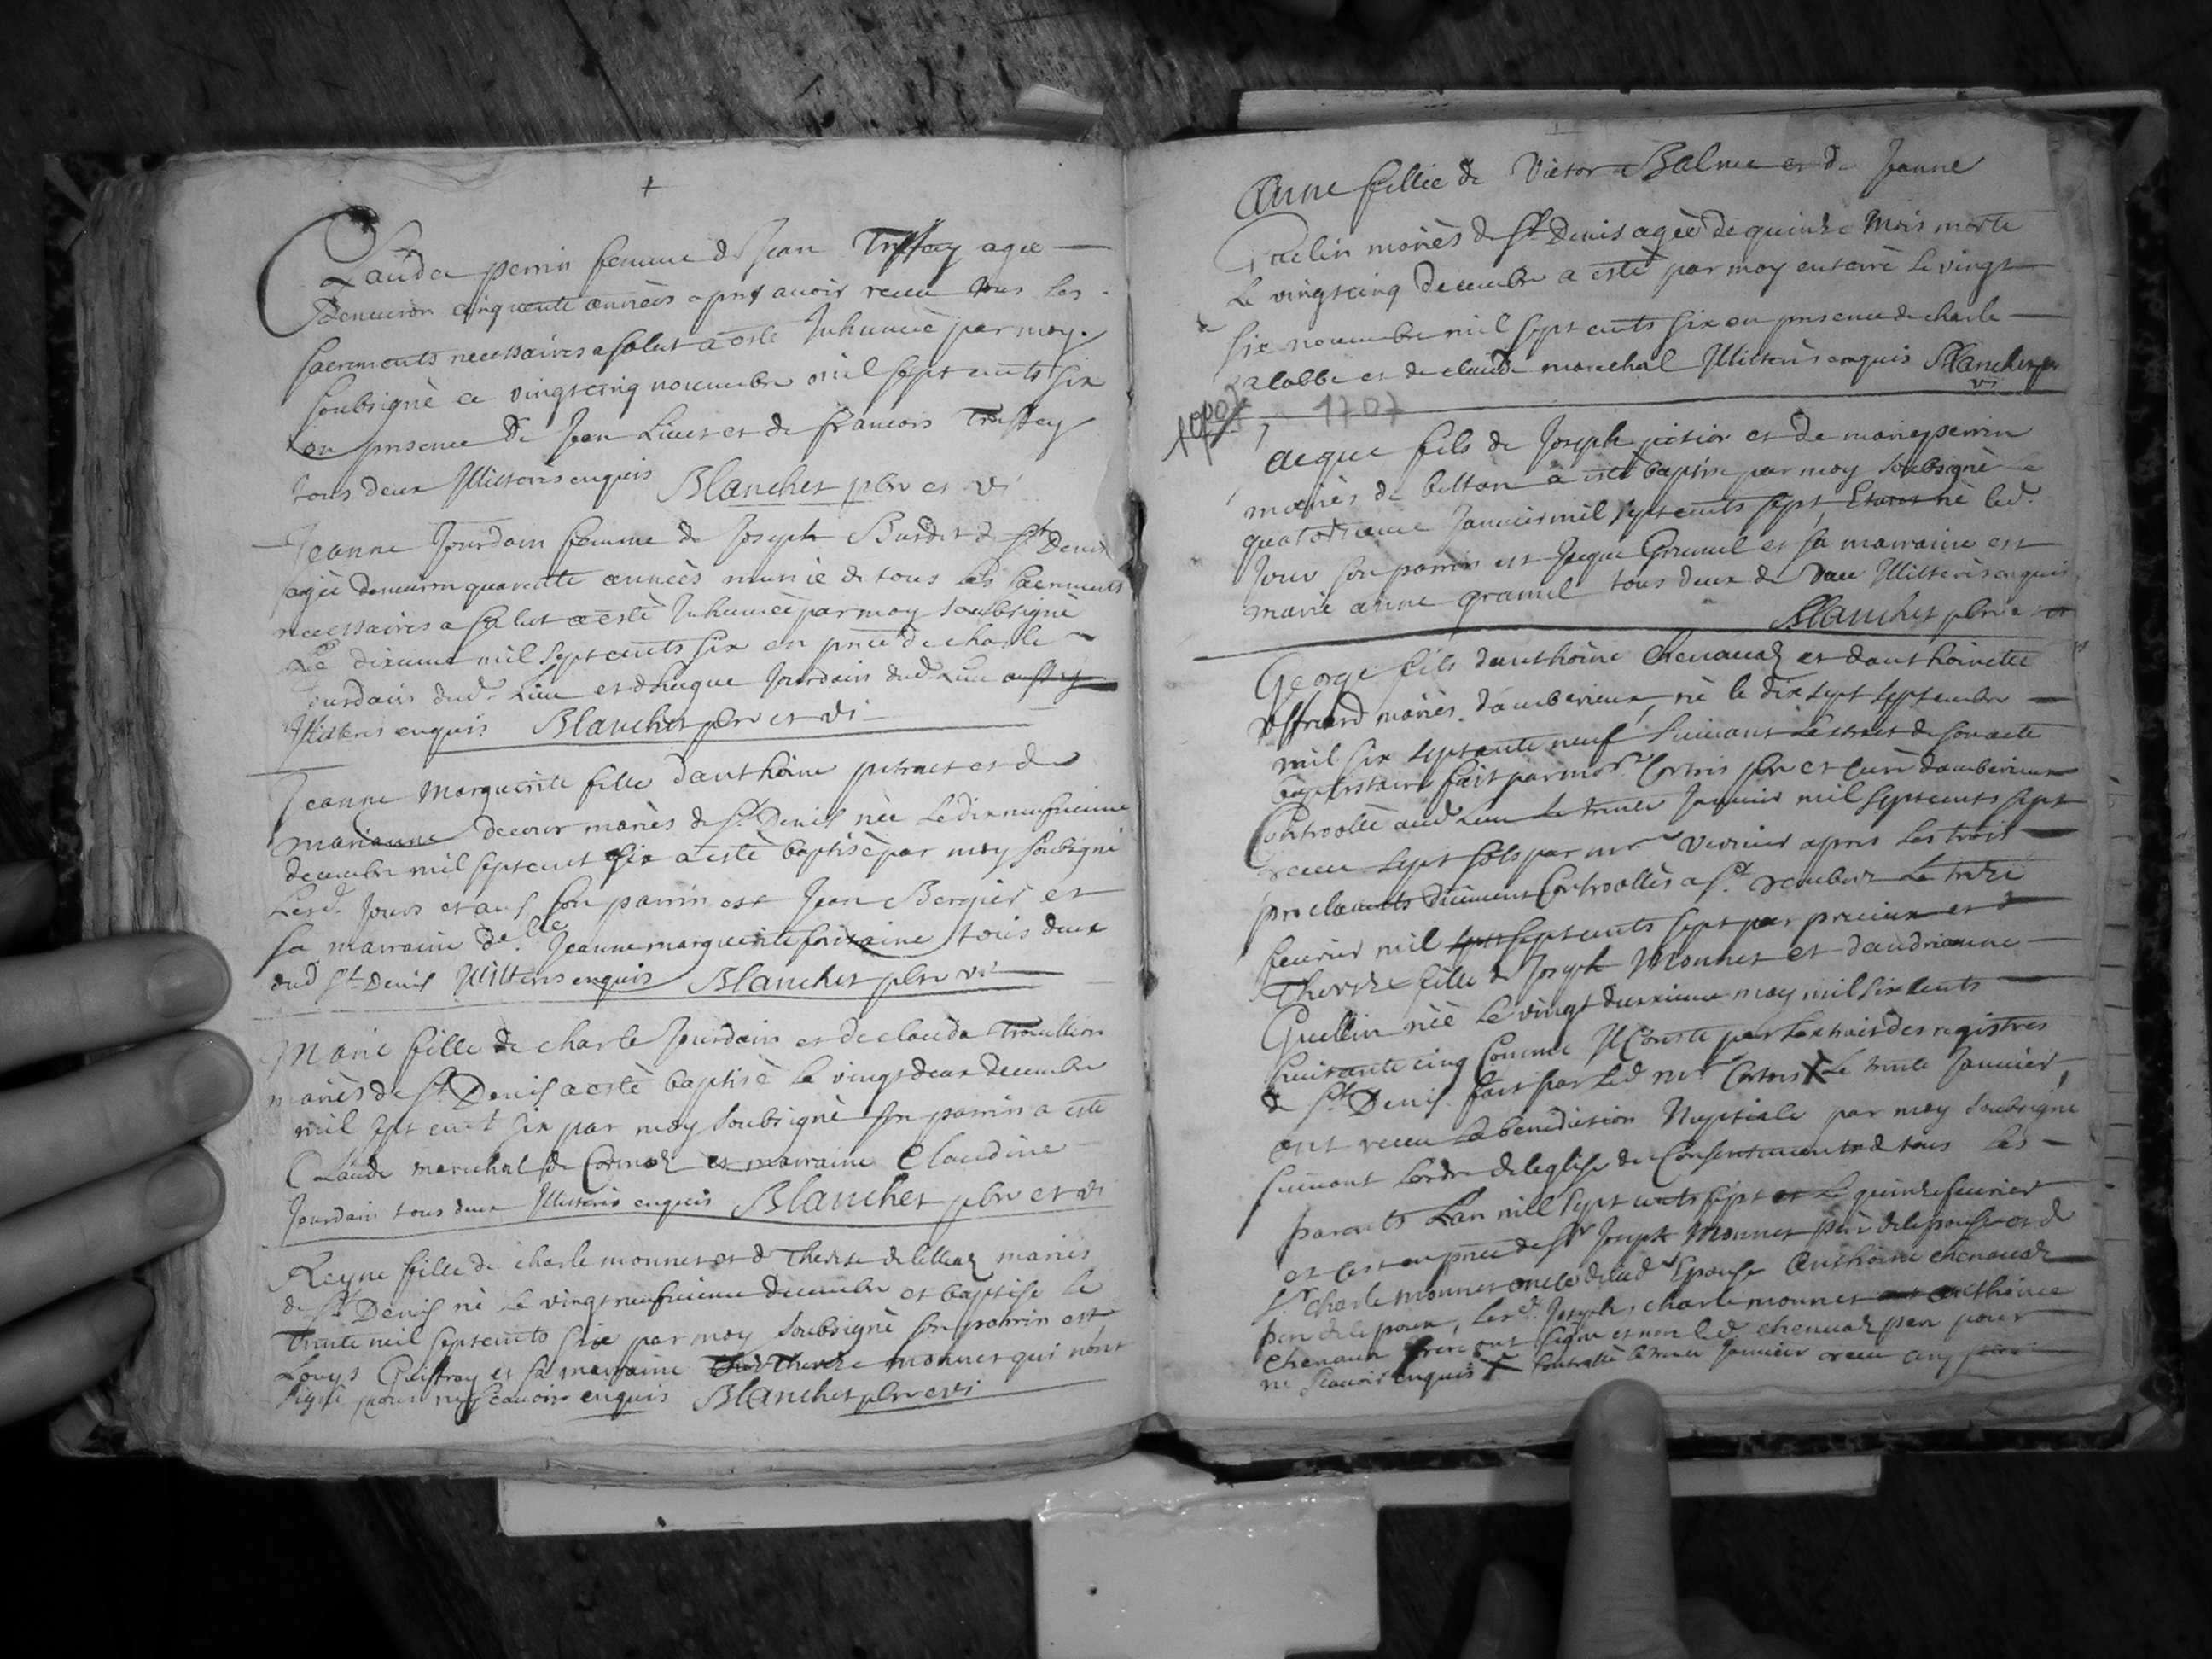 Claudа perrin femme de Jean Truffey agee
denuiron cinquente années apres auoir receu tous les
sacrements necessaires a salut a esté Inhumée par moy
soubsigné ce vingtcinq nouembre mil sept cents six
en presence de Jean et de francois Truffey
tous deux Illiterés enquis Blanchet pbre et vi
Jeanne Jourdain femme de Joseph Burdet de St Denis
agée denuiron quarente années munie de tous les sacrements
necessaires a salut a esté Inhumée par moy soubsigné
Le mil sept cents six en pnce de charle
Jourdain dud. Lieu et de Jourdain dud. Lieu
Illiterés enquis Blanchet pbre et vi
Jeanne Marguerite fille danthoine et de
marianne mariés de St Denis née Le dix neufuieme
decembre mil sept cent six a esté baptisé par moy soubsigné
Lesd. Jours et an son parrin est Jean Bergier et
sa marraine delle Jeanne marguerite fontaine tous deux
dud St Denis Illiterés enquis Blanchet pbre vi
Marie fille de charle Jourdain et de clauda
mariés de St Denis a esté baptisé le vingt deux decembre
mil sept cent six par moy soubsigné son parrin a esté
Claude marechal de Cormoz et marraine Claudine
Jourdain tous deux Illiterés enquis Blanchet pbre et vi
Reyne fille de charle monnet et de Therese mariés
de St Denis né le vingt neufuieme decembre et baptisé le
trente mil sept cents six par moy soubsigné son parrin est
Louys Guiffray et sa marraine Therese monnet qui nont
signé pour ne scauoir enquis Blanchet pbre et vi
Anne fillie de Victor Balme et de Jeanne
mariés de St Denis agée de quinze mois morte
Le vingtcinq decembre a esté par moy enterré le vingt
six nouembre mil sept cents six en presence de charle
et de claude marechal Illiterés enquis Blanchet pbr
vi
1707 1707
Jacque fils de Joseph et de marie perrin
mariés de a esté baptisé par moy soubsigné le
quatorzieme Januier mil sept cents sept, né led.
Jour son parrin est Jaque Gramel et sa marraine est
marie anne gramel tous deux de Illiterés enquis
Blanchet pbre et vi
George fils danthoine Chenauaz et danthoinette
mariés dambérieux, né le dix sept septembre
mil six septante neuf suiuant Lextrait de son acte
baptistaire fait par mor. Cortois pbre et curé dambérieux
Controolé aud. Lieu Le trente Januier mil sept cents sept
receu sept sols par mr. apres les trois
proclamats duement Controollés a St. Le treze
feurier mil sept cents sept par precieux et
Therese fille de Joseph Monnet et dandrianne
Guellin née Le vingt deuxieme may mil six cents
huitante cinq Comme Il Conste par Lextrait des registres
de St Denis fait par led mr Cortois X Le trente Januier,
ont receu La benediction Nuptiale par moy soubsigné
suiuant Lordre de leglise du Consentement de tous les
parents Lan mil sept cents sept et Le quinze feurier
et cest en pnce de Sr Joseph Monnet pere de lepouse et de
Sr. charle monnet oncle de lad. Epouse Anthoine chenauaz
pere de lepoux, Lesd. Joseph, charle monnet anthoine
chenauaz frere ont signé et non led. chenauaz pere pour
ne scauoir enquis X Controllé le trente Januier receu cinq sols